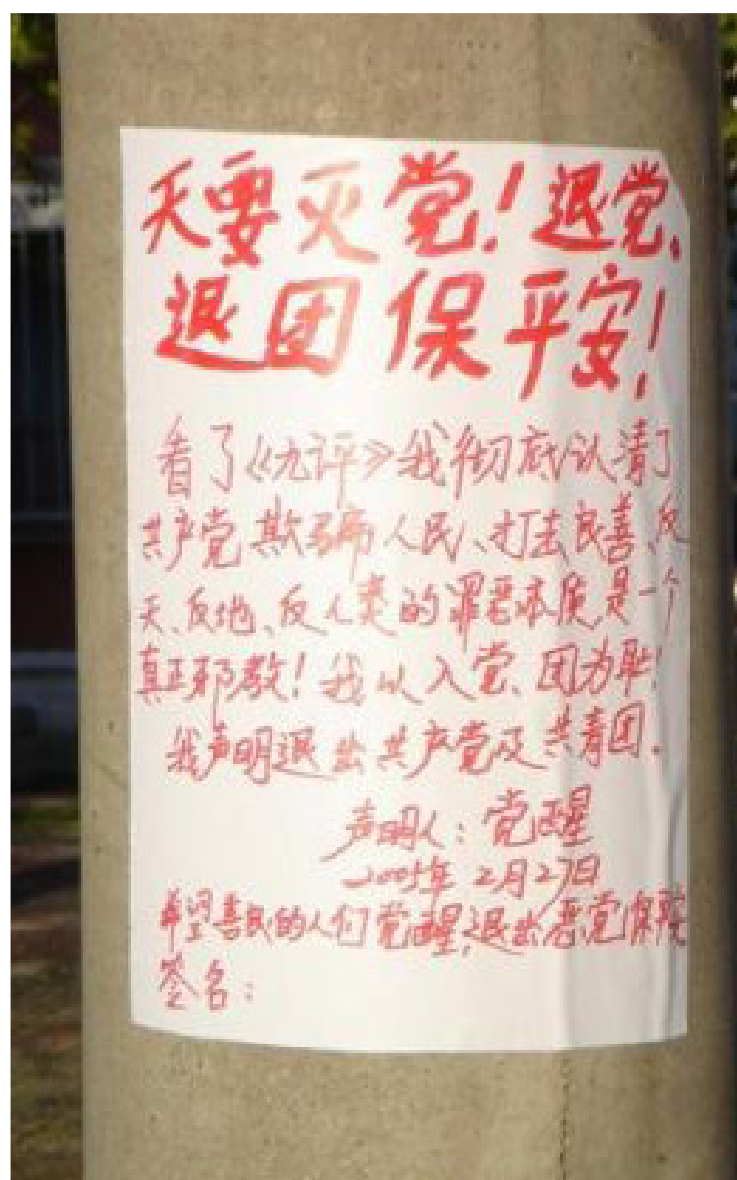 天要灭党!退党、
退团保平安!
看了《九评》我彻底认清了
共产党欺骗人民、打击良善、反
天、反地、反人类的罪恶本质,是一个
真正邪教!我以入党、团为耻!
我声明退出共产党及共青团。
声明人:觉醒
2005年2月27日
希望善良的人们觉醒,退出恶党保平安
签名: